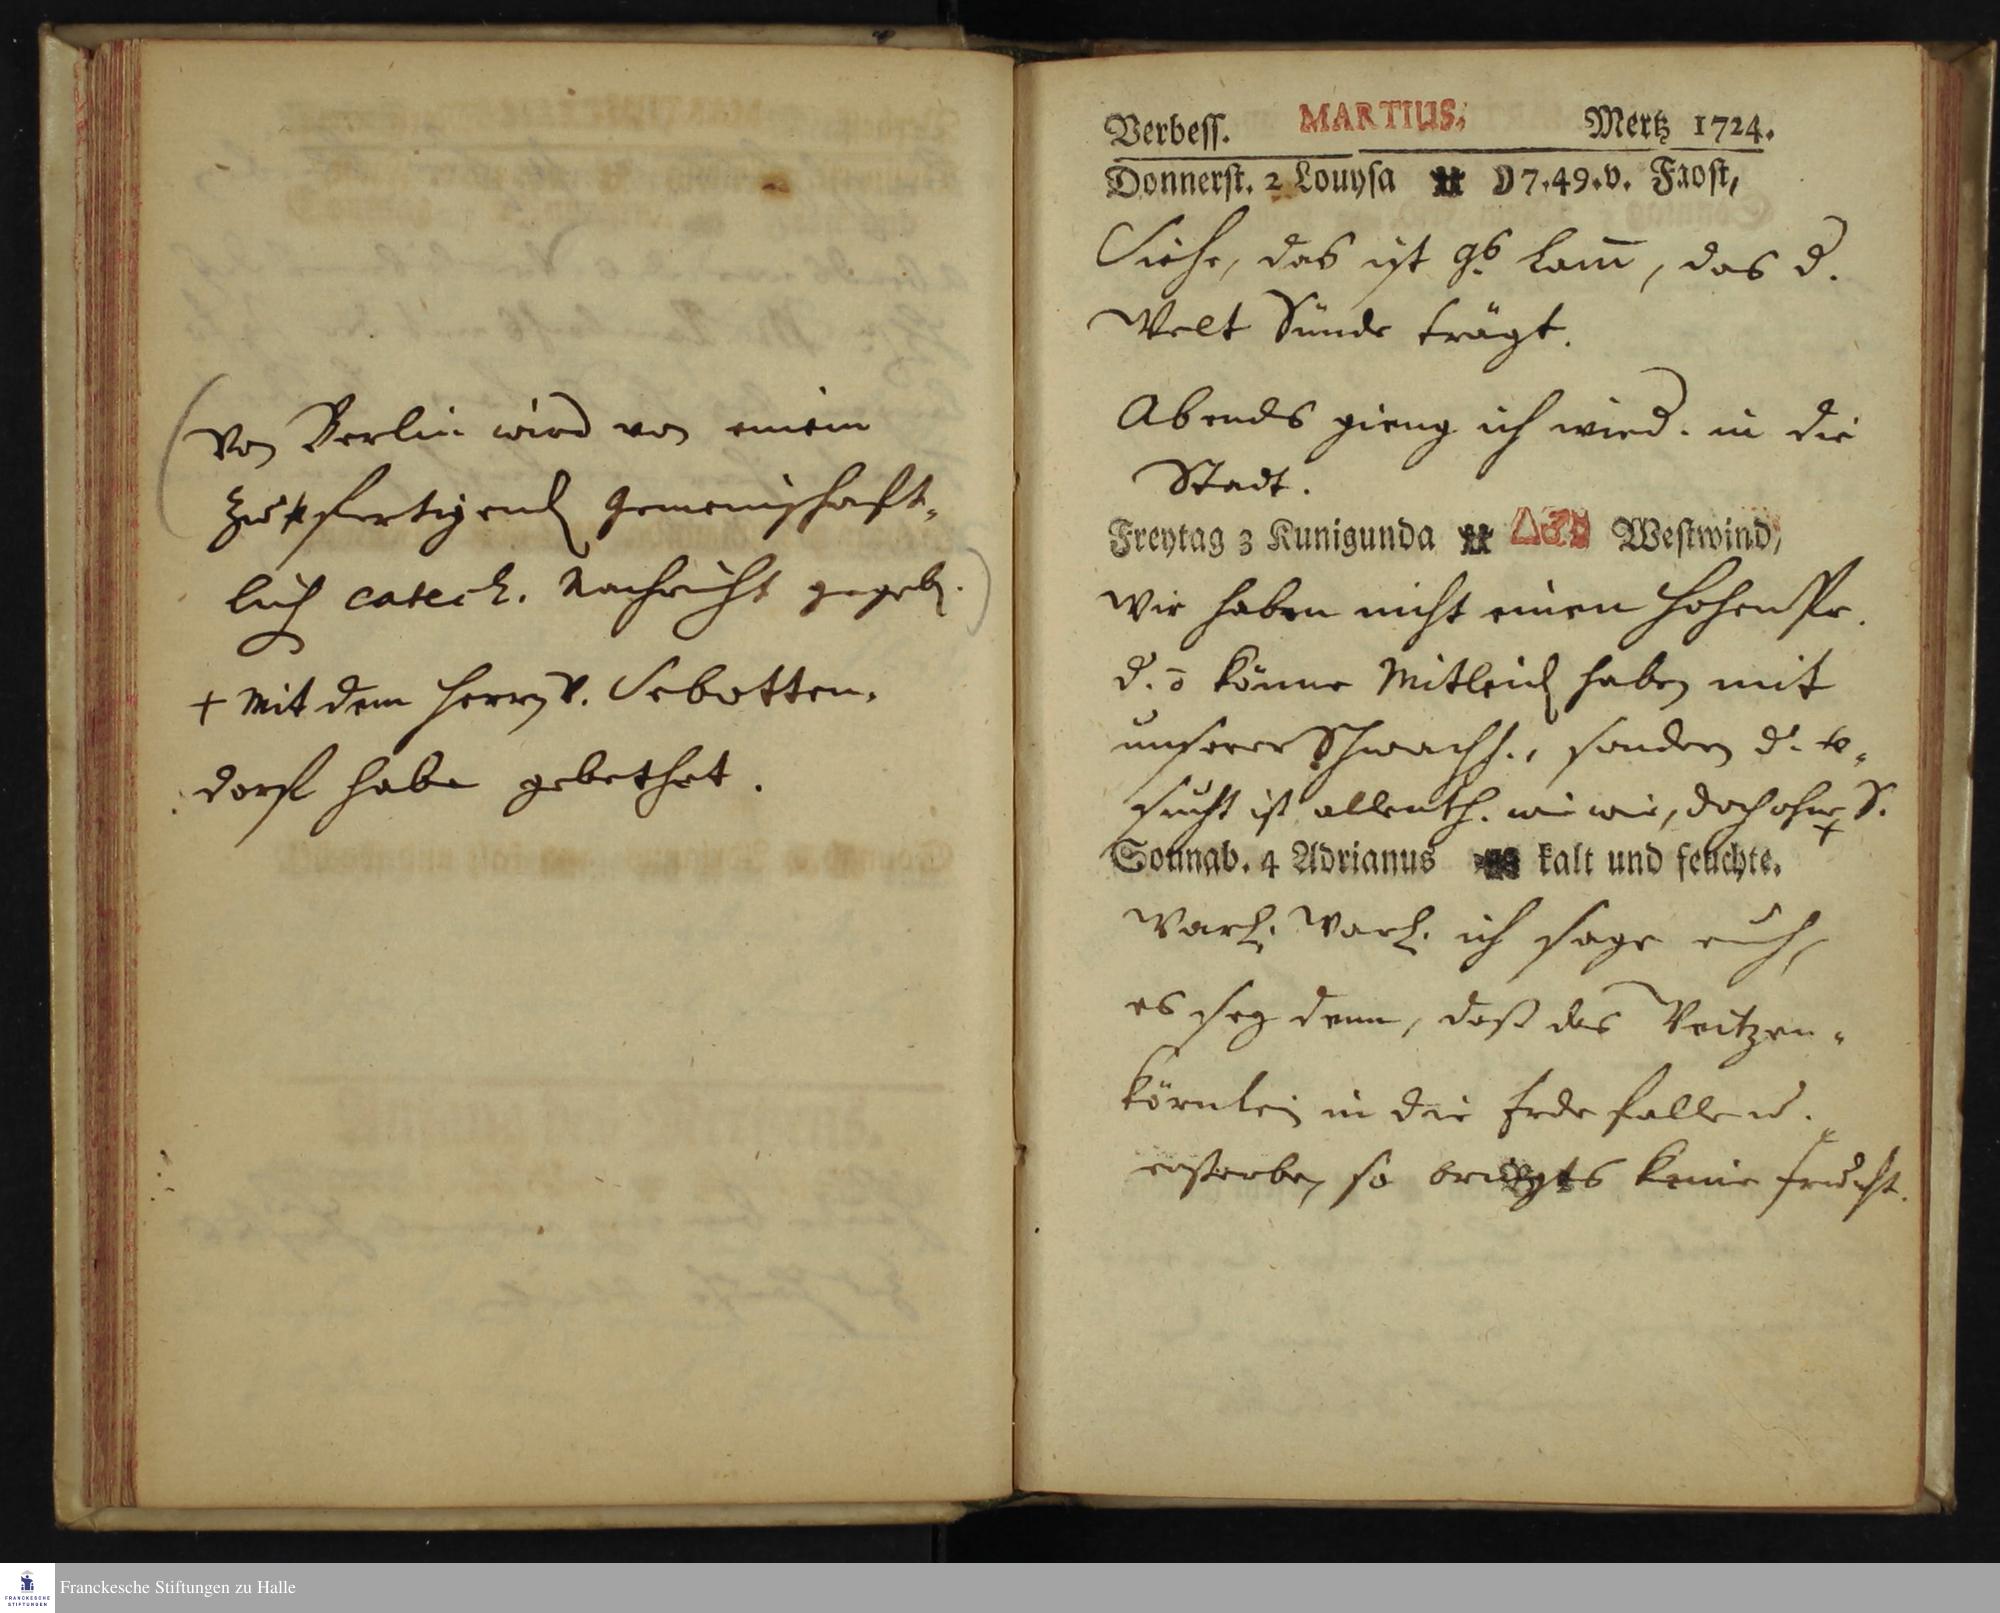 (Von Berlin wird von einem
zu fertigend gemeinschaft-
lich catech. Nachricht gegeb.)
+ Mit dem Herrn v. Sebotten-
dorf habe gebethet.
Verbess. MARTIUS. Mertz 1724.
Donnerst. 2 Louysa 7.49.v. Frost,
Siehe, das ist gs Lam̄, das d.
Welt Sünde trägt.
Abends gieng ich wied. in die
Stadt.
Freytag 3 Kunigunda Westwind,
Wir haben nicht einen HohenPr.
d. ō könne Mitleid haben mit
unserer Schwachh., sondern d. v-
sucht ist allenth. wie wir, doch ohne S. +
Sonnab. 4 Adrianus kalt und feuchte.
Warl. Warl. ich sage euch,
es sey denn, daß das Weitzen-
körnlein in die Erde falle u.
ersterbe, so bringts keine frucht.
FRANCKESCHE
STIFTUNGEN
Franckesche Stiftungen zu Halle